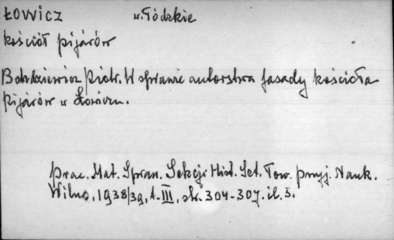 ŁOWICZ w. Łódzkie
kościół pijarów
Bohdziewicz Piotr. W sprawie autorstwa fasady kościoła
Pijarów w Łowiczu.
Prac. Mat. Spraw. Sekcji Hist. Szt. Tow. Przyj. Nauk.
Wilno, 1938/39, t. III, str. 304-307, il. 5.